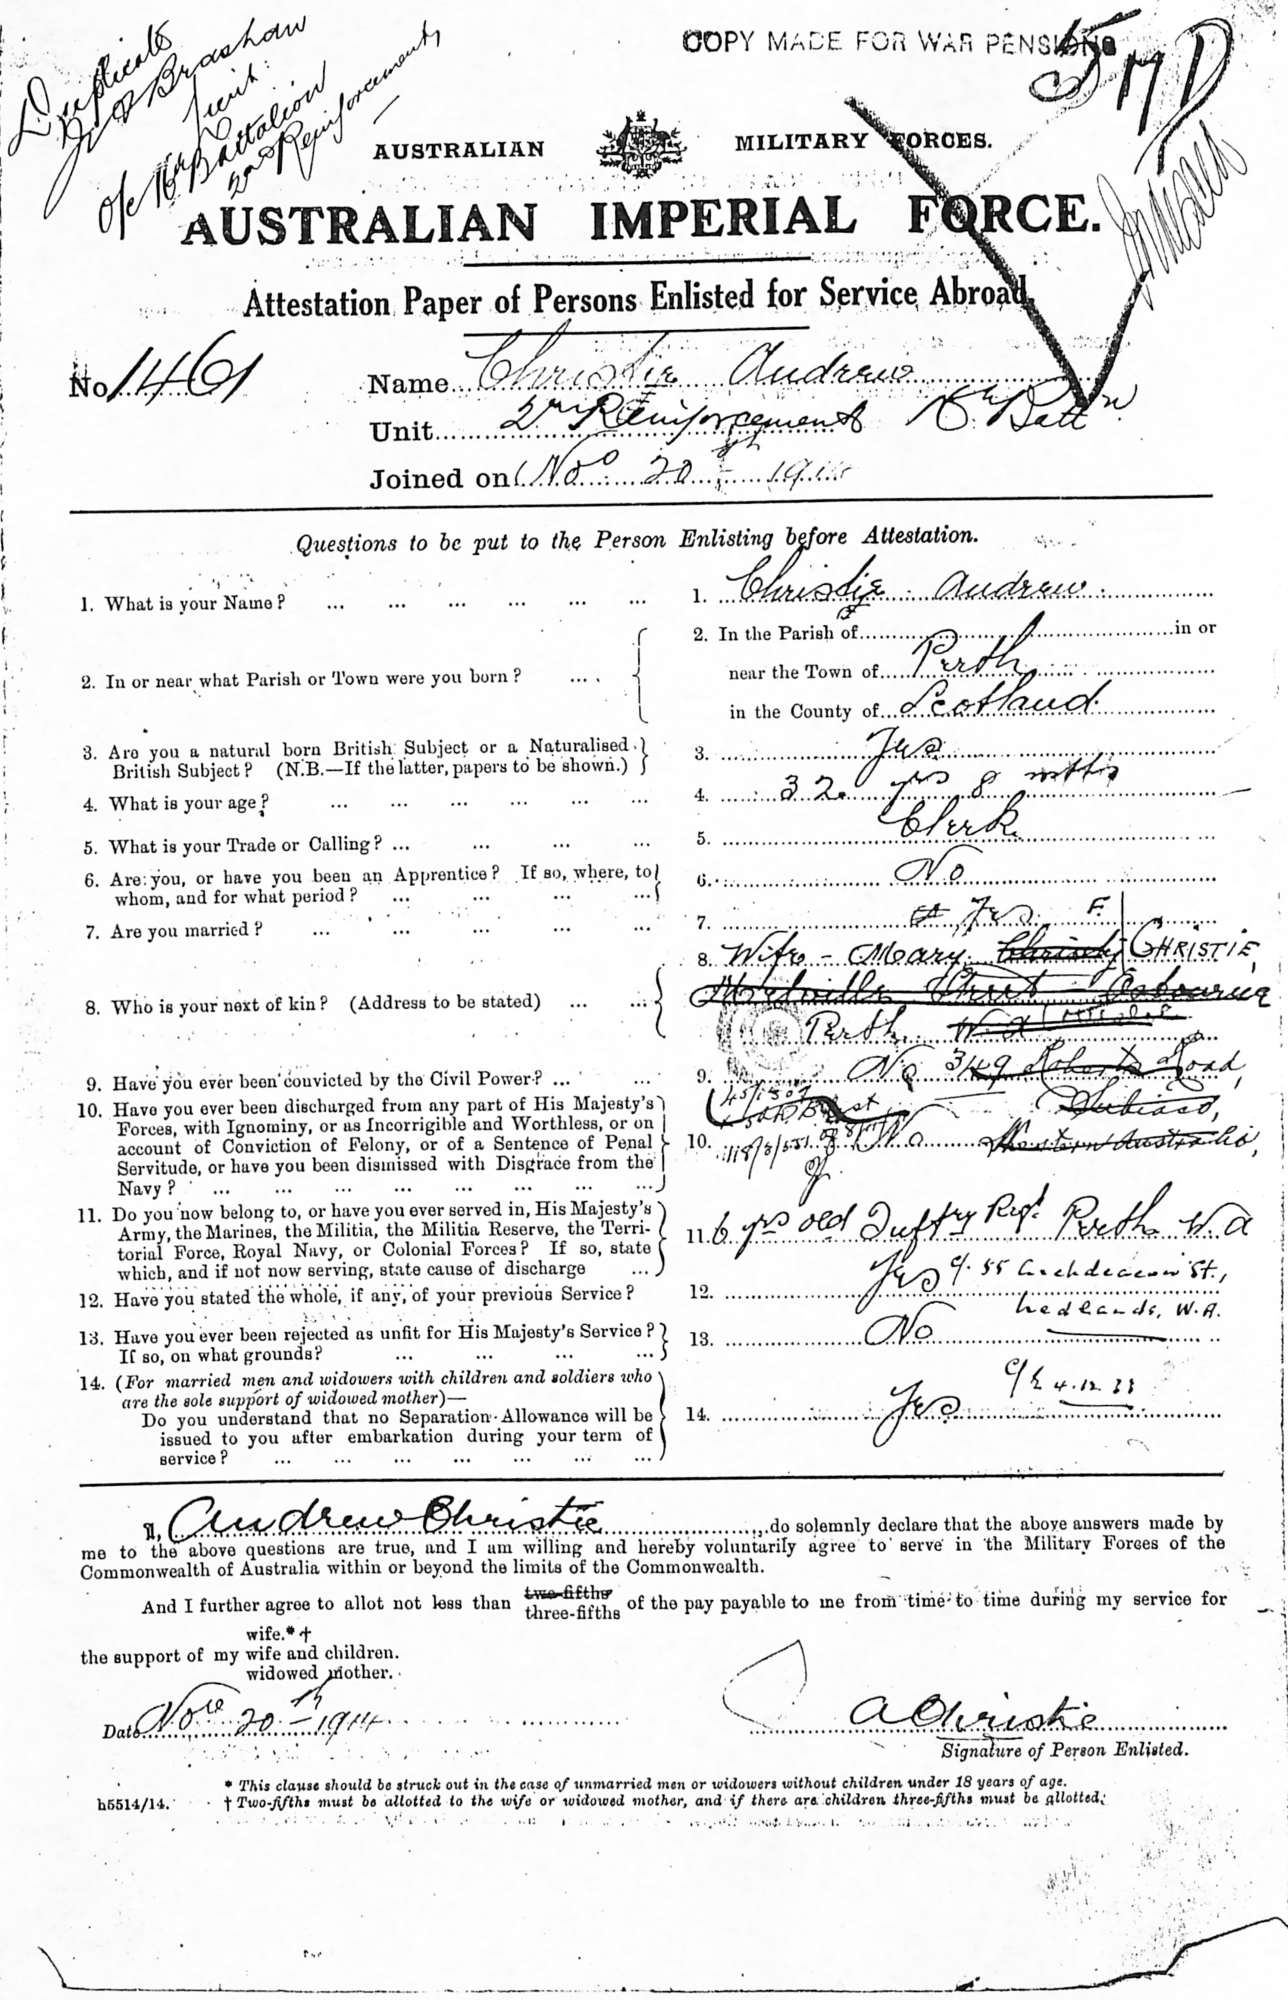 Duplicate
COPY MADE FOR WAR PENSIONS
5 MD
O/C 16th Battalion
2nd Reinforcements
AUSTRALIAN MILITARY FORCES.
AUSTRALIAN IMPERIAL FORCE.
Attestation Paper of Persons Enlisted for Service Abroad.
No. 1461
Name Christie Andrew
Unit 2nd Reinforcements 16th Battn
Joined on Nov 20th 1914
Questions to be put to the Person Enlisting before Attestation.
1. What is your Name? ... ... ... ... ... ...
1. Christie Andrew
2. In or near what Parish or Town were you born? ...
2. In the Parish of in or
near the Town of Perth
in the County of Scotland
3. Are you a natural born British Subject or a Naturalised
British Subject? (N.B.—If the latter, papers to be shown.)
3. Yes
4. What is your age? ... ... ... ... ... ...
4. 32 yrs 8 mths
5. What is your Trade or Calling? ... ... ... ...
5. Clerk
6. Are you, or have you been an Apprentice? If so, where, to
whom, and for what period? ... ... ... ...
6. No
7. Are you married? ... ... ... ... ... ...
7. Yes F.
8. Who is your next of kin? (Address to be stated) ... ...
8. Wife - Mary CHRISTIE,
Street Osbourne
Perth W.A
9. Have you ever been convicted by the Civil Power? ... ...
9. No 349 Roberts Road,
Subiaco,
10. Have you ever been discharged from any part of His Majesty's
Forces, with Ignominy, or as Incorrigible and Worthless, or on
account of Conviction of Felony, or of a Sentence of Penal
Servitude, or have you been dismissed with Disgrace from the
Navy? ... ... ... ... ... ... ... ...
10. No Western Australia,
11. Do you now belong to, or have you ever served in, His Majesty's
Army, the Marines, the Militia, the Militia Reserve, the Terri-
torial Force, Royal Navy, or Colonial Forces? If so, state
which, and if not now serving, state cause of discharge ...
11. 6 yrs old Inftry Regt. Perth W.A
12. Have you stated the whole, if any, of your previous Service?
12. Yes
c/- 55 Archdeacon St.,
Nedlands, W.A.
13. Have you ever been rejected as unfit for His Majesty's Service?
If so, on what grounds? ... ... ... ...
13. No
14. (For married men and widowers with children and soldiers who
are the sole support of widowed mother)—
Do you understand that no Separation Allowance will be
issued to you after embarkation during your term of
service? ... ... ... ... ... ... ...
14. Yes
4.12.33
I, Andrew Christie do solemnly declare that the above answers made by
me to the above questions are true, and I am willing and hereby voluntarily agree to serve in the Military Forces of the
Commonwealth of Australia within or beyond the limits of the Commonwealth.
And I further agree to allot not less than two-fifths
three-fifths of the pay payable to me from time to time during my service for
wife.*†
the support of my wife and children.
widowed mother.
Date Nov 20th 1914
A Christie
Signature of Person Enlisted.
* This clause should be struck out in the case of unmarried men or widowers without children under 18 years of age.
h5514/14. † Two-fifths must be allotted to the wife or widowed mother, and if there are children three-fifths must be allotted.